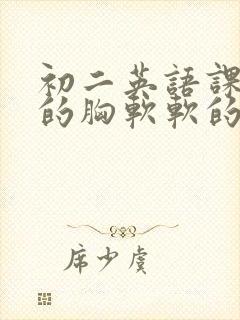 初二英語課
的胸軟軟的
席少虞